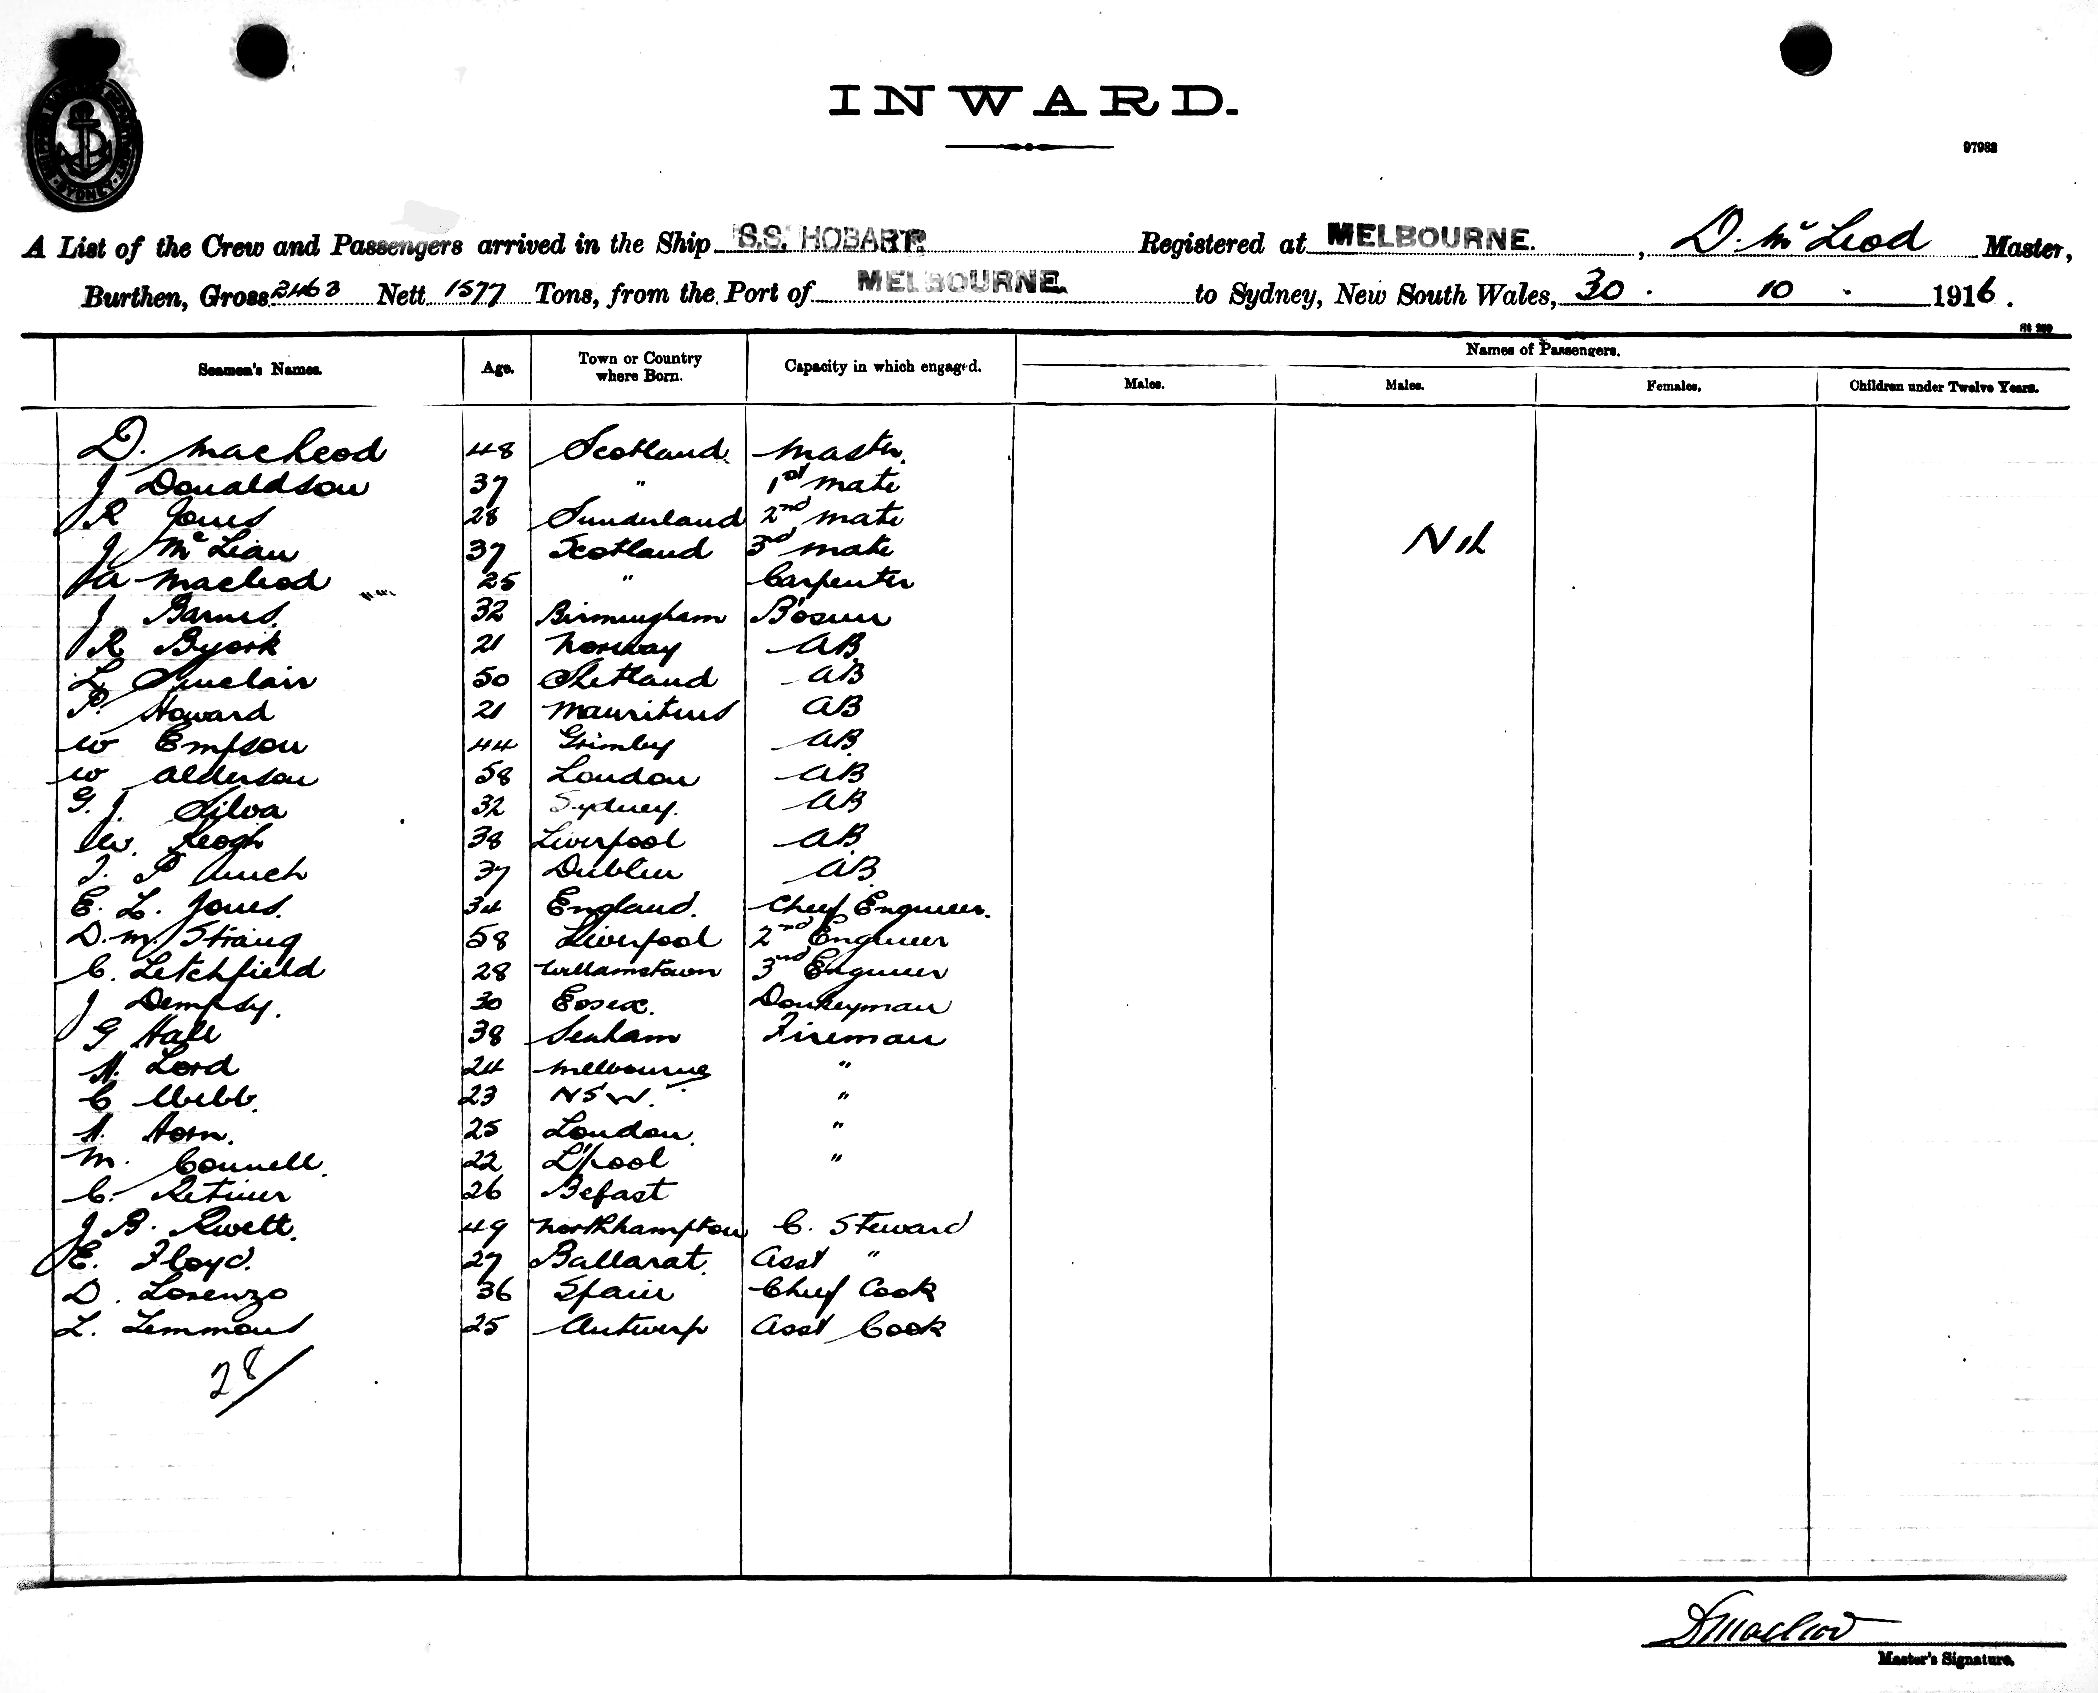 INWARD.
97982
A List of the Crew and Passengers arrived in the Ship S.S. HOBART. Registered at MELBOURNE. , D. Mc Leod Master,
Burthen, Gross 2463 Nett 1577 Tons, from the Port of MELBOURNE. to Sydney, New South Wales, 30 . 10 . 1916.
Seamen's Names. Age. Town or Country where Born. Capacity in which engaged. Names of Passengers.
Males. Males. Females. Children under Twelve Years.
D. MacLeod 48 Scotland. Master.
J Donaldson 37 " 1st Mate
R Jones 28 Sunderland 2nd Mate
J McLean 37 Scotland 3rd Mate Nil
A Macleod 25 " Carpenter
J Barnes. 32 Birmingham Bosun
R Byork 21 Norway AB
L Sinclair 50 Shetland AB
P. Howard 21 Mauritius AB
W Empson 44 Grimby AB
W Alderson 58 London AB
G. J. Silva 32 Sydney. AB
W. Keogh 38 Liverpool AB
T. P 37 Dublin AB
E. L. Jones. 34 England. Chief Engineer.
D. M. Strang 58 Liverpool 2nd Engineer
C. Letchfield 28 Williamstown 3nd Engineer
J Dempsy. 30 Essex. Donkeyman
G Hall 38 Seaham Fireman
H. Lord 24 Melbourne "
C Webb. 23 NSW. "
H. Horn. 25 London. "
M. Connell. 22 L'pool "
C. 26 Befast
J B. Rwett. 49 Northhampton C. Steward
E. Floyd. 27 Ballarat. Asst "
D. Lorenzo 36 Spain Chief Cook
L. Lemmons 25 Antwerp Asst Cook
28/
D Macleod
Master's Signature.